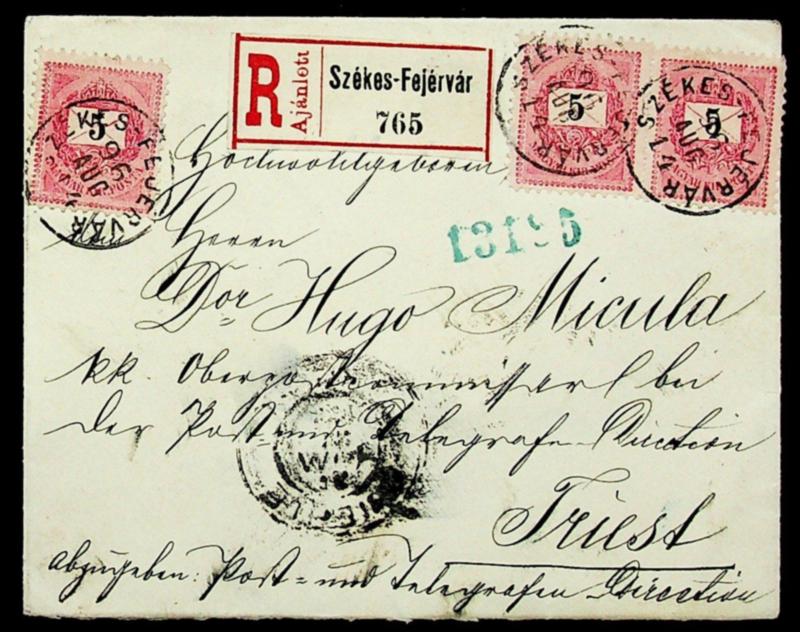 R Ajánlott Székes-Fejérvár 765
5 5 5
SZÉKES-FEJÉRVÁR 96 AUG 14
SZÉKES-FEJÉRVÁR AUG 14
SZÉKES-FEJÉRVÁR AUG 14
Hochwohlgeboren
Herrn
13195
Dor Hugo Micula
kk Oberpostcommissär bei
der Post- und Telegrafen Direction
Triest
abzugeben: Post- und Telegrafen Direction